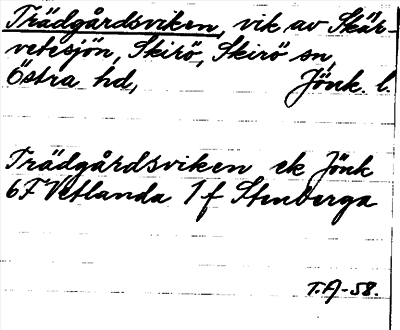 Trädgårdsviken, vik av Skär-
vetesjön, Skirö, Skirö sn,
Östra hd, Jönk. l.
Trädgårdsviken ek Jönk
6F Vetlanda 1f Stenberga
T.A-58.